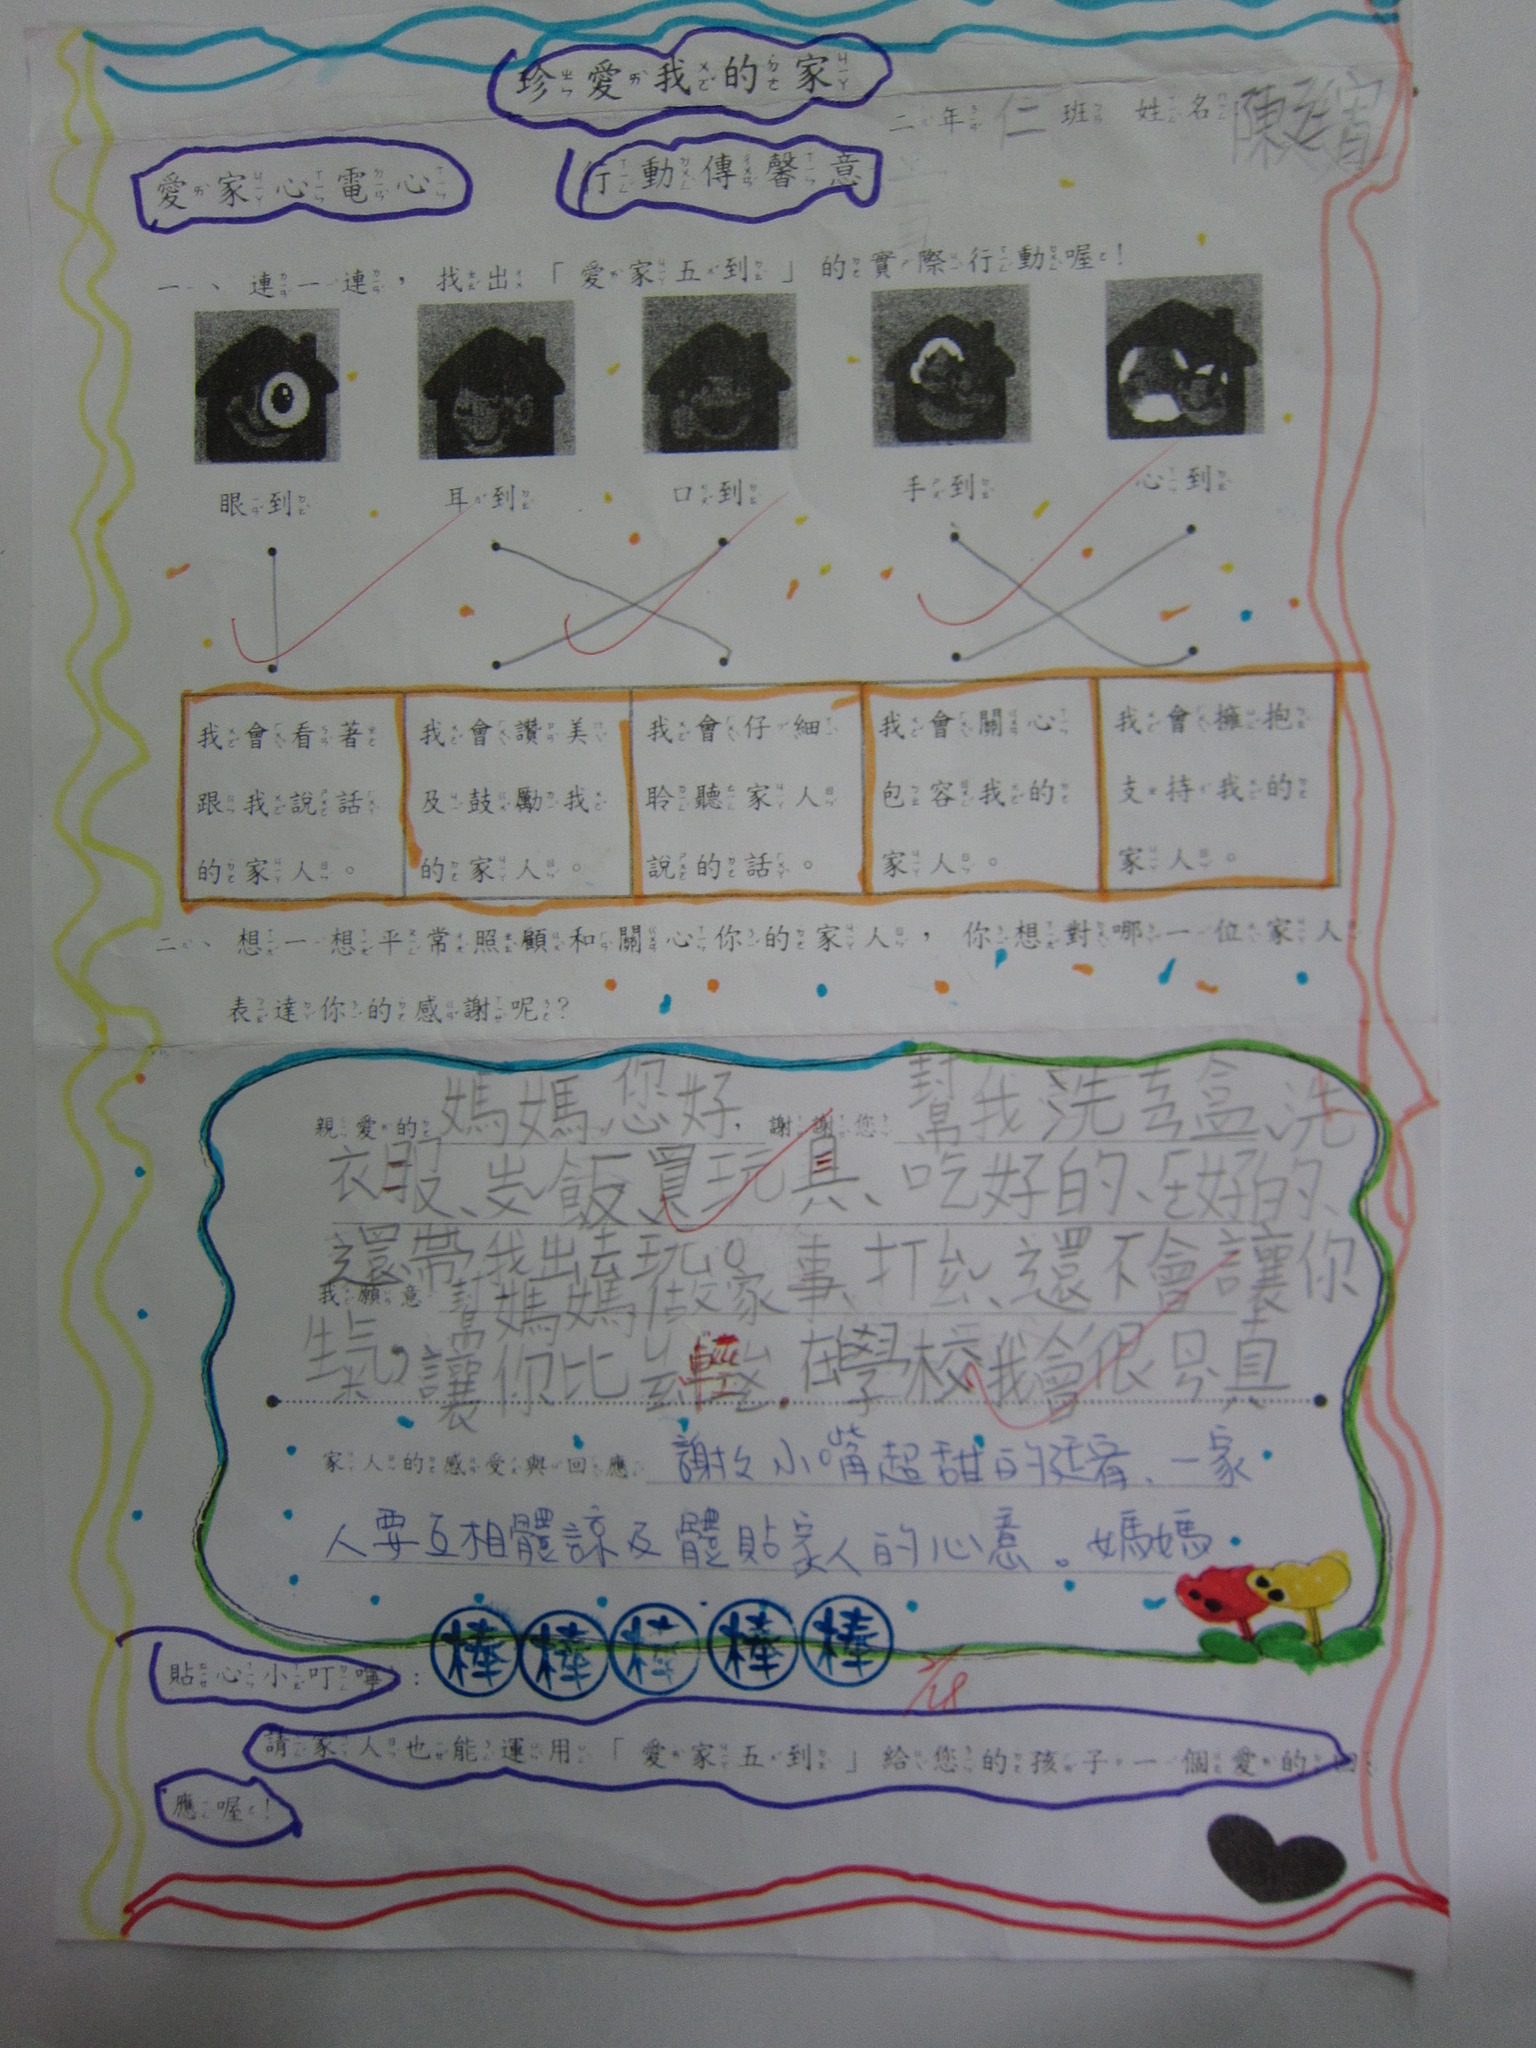 珍愛我的家
二年仁班 姓名陳廷睿
愛家心電心 行動傳馨意
一、連一連，找出「愛家五到」的實際行動喔！
眼到 耳到 口到 手到 心到
我會看著跟我說話的家人。
我會讚美及鼓勵我的家人。
我會仔細聆聽家人說的話。
我會關心包容我的家人。
我會擁抱支持我的家人。
二、想一想平常照顧和關心你的家人，你想對哪一位家人
表達你的感謝呢？
親愛的媽媽您好，謝謝您幫我洗ㄘㄢ盒、洗
衣服、ㄓㄨˇ飯、買玩具、吃好的、ㄓㄨˋ好的、
還帶我出去玩。
我願意幫媽媽做家事、打ㄙㄠˇ、還不會讓你
生氣，讓你比ㄐㄧㄠˋ輕ㄙㄨㄥ。在學校我會很ㄖㄣˋ真
家人的感受與回應 謝謝小嘴超甜的廷睿、一家
人要互相體諒及體貼家人的心意。媽媽
貼心小叮嚀： 棒 棒 棒 棒 棒
請家人也能運用「愛家五到」給您的孩子一個愛的回
應喔！